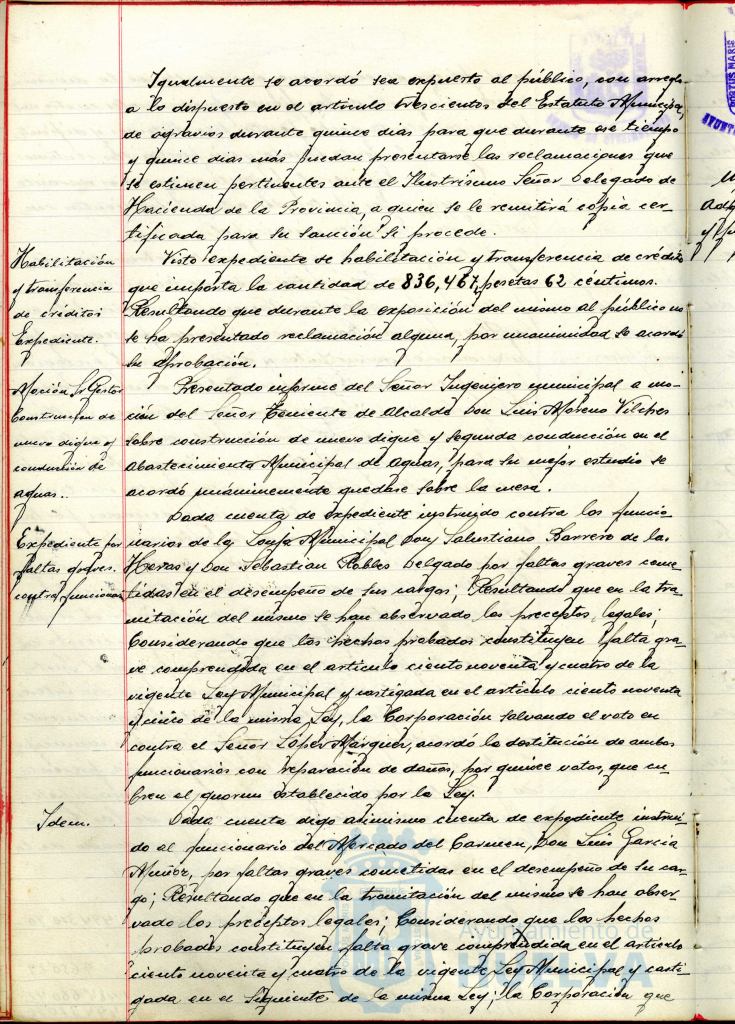 Igualmente se acordó sea expuesto al público, con arreglo
a lo dispuesto en el articulo trescientos del Estatuto Municipal,
de agravios durante quince dias para que durante ese tiempo
y quince dias más puedan presentarse las reclamaciones que
se estimen pertinentes ante el Ilustrisimo Señor Delegado de
Hacienda de la Provincia, a quien se le remitirá copia cer-
tificada para su sanción si procede.
Habilitación
y transferencia
de créditos
Expediente.
Visto expediente de habilitación y transferencia de crédito
que importa la cantidad de 836,467, pesetas 62 céntimos.
Resultando que durante la exposición del mismo al público no
se ha presentado reclamación alguna, por unanimidad se acordó
su aprobación.
Moción Sr Gestor
Construccion de
nuevo dique y
conducción de
aguas..
Presentado informe del Señor Ingeniero municipal a mo-
ción del Señor Teniente de Alcalde Don Luis Moreno Vilches
sobre construcción de nuevo dique y segunda conducción en el
Abastecimiento Municipal de Aguas, para su mejor estudio se
acordó unánimemente quedase sobre la mesa.
Expediente por
faltas graves.
contra funcionar
Dada cuenta de expediente instruido contra los funcio-
narios de la Lonja Municipal Don Salustiano Barrero de las
Heras y Don Sebastian Robles Delgado por faltas graves come-
tidas en el desempeño de sus cargos; Resultando que en la tra-
mitación del mismo se han observado los preceptos legales;
Considerando que los hechos probados constituyen falta gra-
ve comprendida en el articulo ciento noventa y cuatro de la
vigente Ley Municipal y castigada en el articulo ciento noventa
y cinco de la misma Ley, la Corporación salvando el voto en
contra el Señor López Márquez, acordó la destitución de ambos
funcionarios con reparación de daños, por quince votos, que cu-
bren el quorum establecido por la Ley.
Idem.
Dada cuenta digo asimismo cuenta de expediente instrui-
do al funcionario del Mercado del Carmen, Don Luis Garcia
Muñoz, por faltas graves cometidas en el desempeño de su car-
go; Resultando que en la tramitación del mismo se han obser-
vado los preceptos legales; Considerando que los hechos
probados constituyen falta grave comprendida en el articulo
ciento noventa y cuatro de la vigente Ley Municipal y casti-
gada en el siguiente de la misma Ley; la Corporación que
Ayuntamiento de
HUELVA